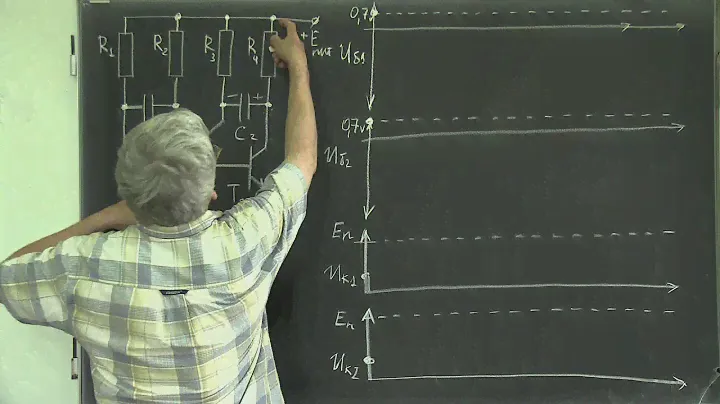 R1 R2 R3 R4 + E пит
- +
C2
T
0,7v
Uб1
0,7v
Uб2
Eп
Uк1
Eп
Uк2